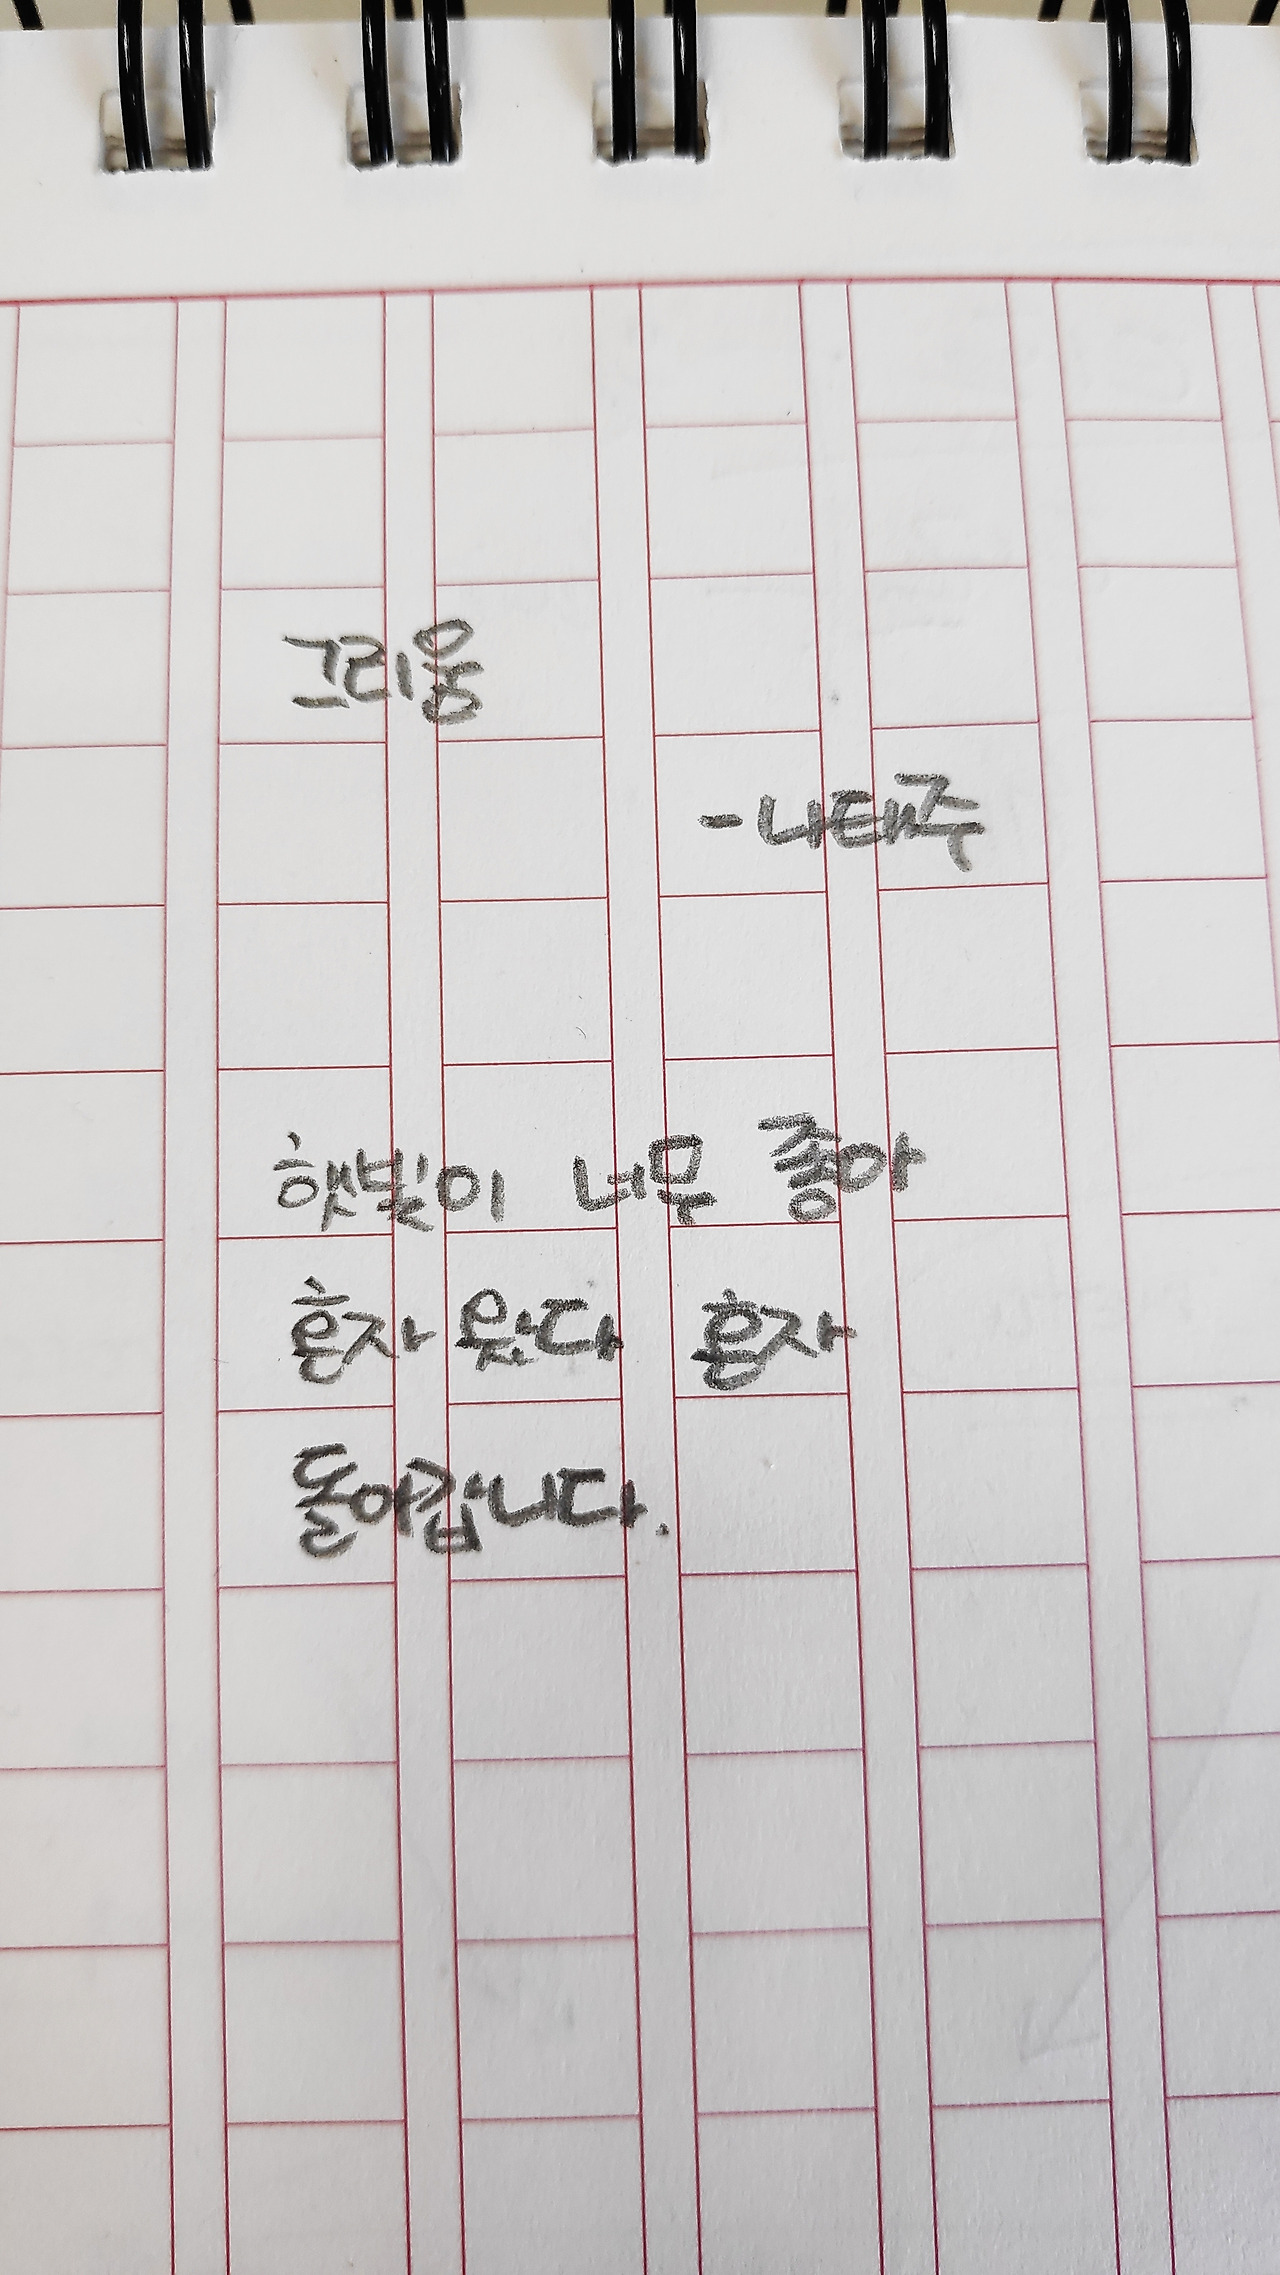 그리움
- 나태주
햇빛이 너무 좋아
혼자 왔다 혼자
돌아갑니다.